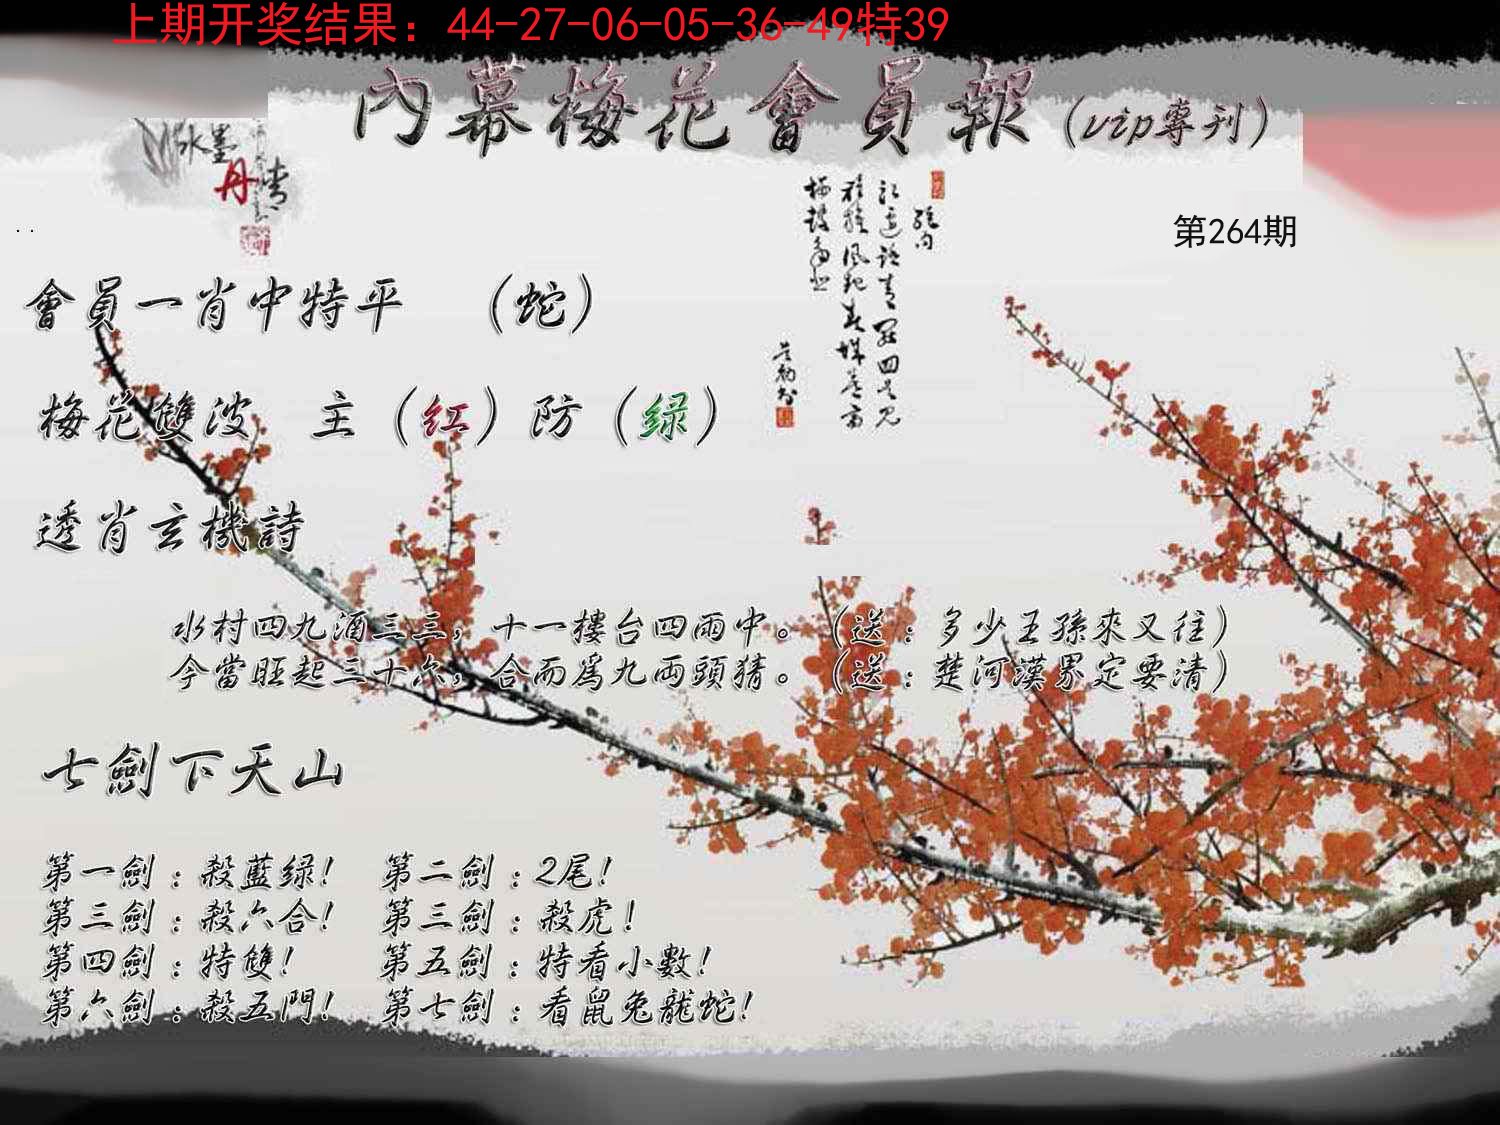 上期开奖结果：44-27-06-05-36-49特39
內幕梅花會員報(vip專刊)
水墨
丹青
第264期
會員一肖中特平　（蛇）
梅花雙波　主（红）防（绿）
透肖玄機詩
水村四九酒三三，十一樓台四雨中。（送：多少王孫來又往）
今當旺起三十六，合而爲九兩頭猜。（送：楚河漢界定要清）
七劍下天山
第一劍：殺藍绿！　第二劍：2尾！
第三劍：殺六合！　第三劍：殺虎！
第四劍：特雙！　第五劍：特看小數！
第六劍：殺五門！　第七劍：看鼠兔龍蛇！